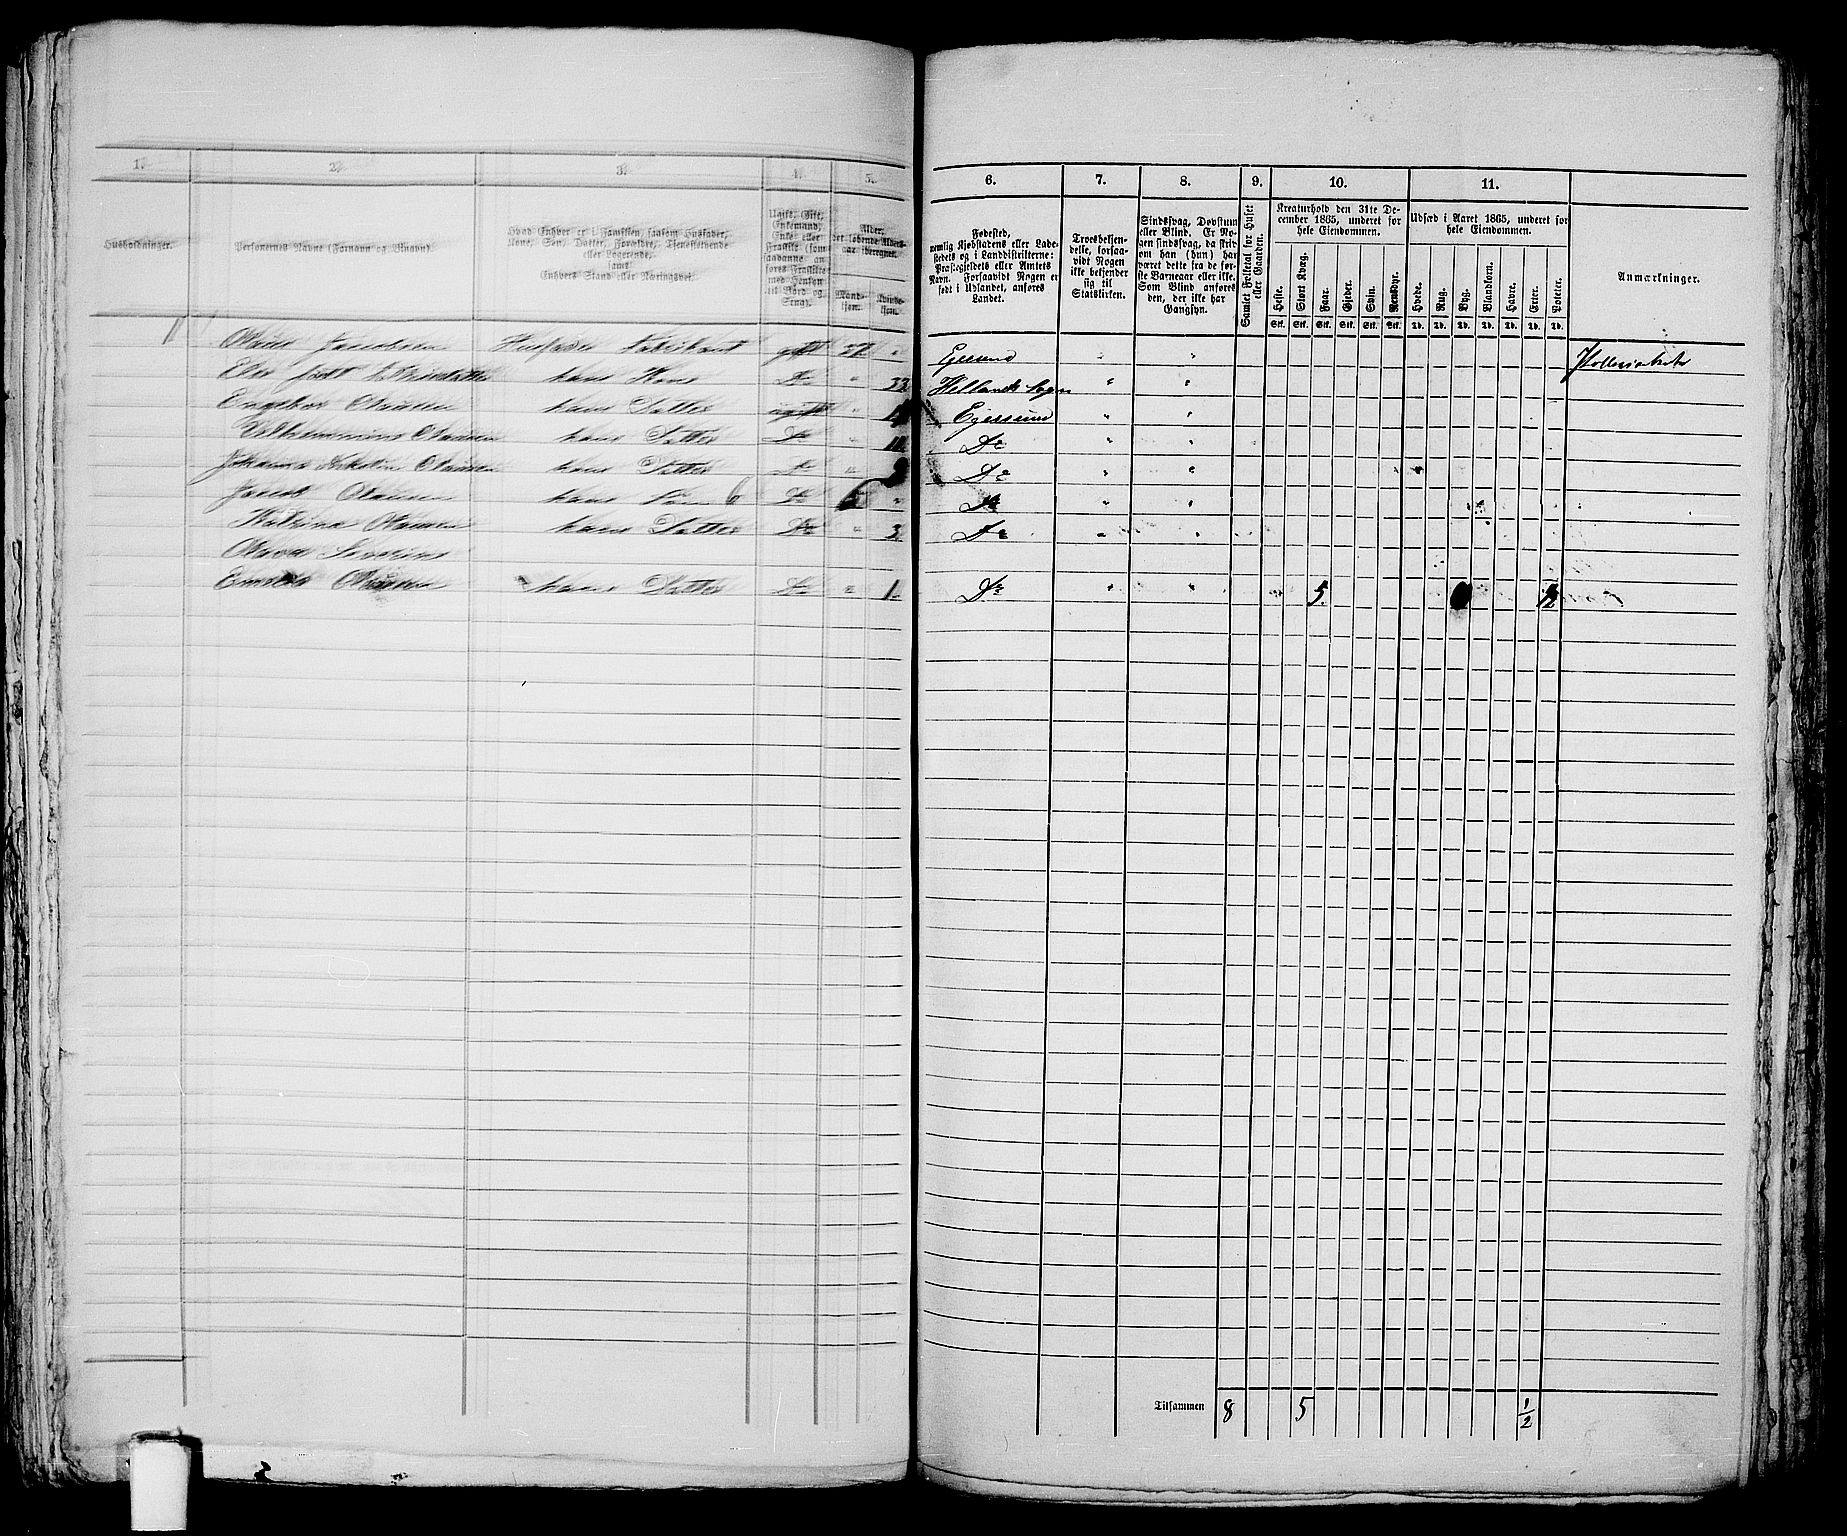 1.
2.
3.
4.
5.
Husholdninger.
Personernes Navne (Fornavn og Tilnavn).
Hvad Enhver er i Familien, saasom Husfader,
Kone, Søn, Datter, Forældre, Tjenestetyende
eller Logerende,
samt
Enhvers Stand eller Næringsvei.
Ugift, Gift,
Enkemand,
Enke eller
Fraskilt (som
saadanne an-
føres Fraskilte
med Hensyn
til Bord og
Seng).
Alder,
det løbende Alders-
aar iberegnet.
Mand-
kjøn.
Kvinde-
kjøn.
Jacobsen Husfader Fabrikant gift "
Else født hans Kone Do " 33
Olausen hans Datter ugift "
Olausen hans Datter Do "
Johanna Olausen hans Datter Do " 9
Jacob Olausen hans Søn Do 6 "
Katrina Olausen hans Datter Do " 3
Olava
Olausen hans Datter Do " 1
6.
7.
8.
9.
10.
11.
Fødested,
nemlig Kjøbstadens eller Lade-
stedets og i Landdistrikterne:
Præstegjeldets eller Amtets
Navn. Forsaavidt Nogen er
født i Udlandet, anføres
Landet.
Troesbekjen-
delse, forsaa-
vidt Nogen
ikke bekjender
sig til
Statskirken.
Sindssvag, Døvstum
eller Blind. Er No-
gen sindssvag, da skriv
om han (hun) har
været dette fra de før-
ste Barneaar eller ikke.
Som Blind anføres
den, der ikke har
Gangsyn.
Samlet Folketal for Huset
eller Gaarden.
Kreaturhold den 31te De-
cember 1865, underet for
hele Eiendommen.
Heste. Stort Kvæg. Faar. Gjeder. Svin. Rensdyr.
Stk. Stk. Stk. Stk. Stk. Stk.
Udsæd i Aaret 1865, underet for
hele Eiendommen.
Hvede. Rug. Byg. Blandkorn. Havre. Erter. Poteter.
Td. Td. Td. Td. Td. Td. Td.
Anmærkninger.
Egersund " "
Hellands Sogn " "
Egersund " "
Do " "
Do " "
Do " "
Do " "
Do " " 5 1/2
Tilsammen 8 5 1/2